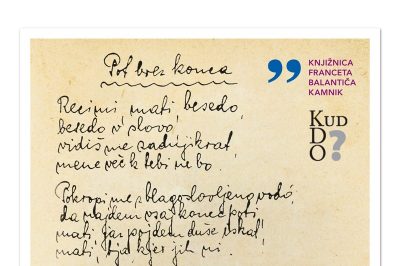 Pot brez konca
Recimi, mati, besedo,
besedo v slovo,
vidiš me zadnjikrat,
mene več k tebi ne bo.
Pokropi me z blagoslovljeno vodó,
da najdem vsaj konec poti,
mati, jaz pojdem duše iskat,
mati, tja, kjer jih ni.
KNJIŽNICA
FRANCETA
BALANTIČA
KAMNIK
KUD
DO?